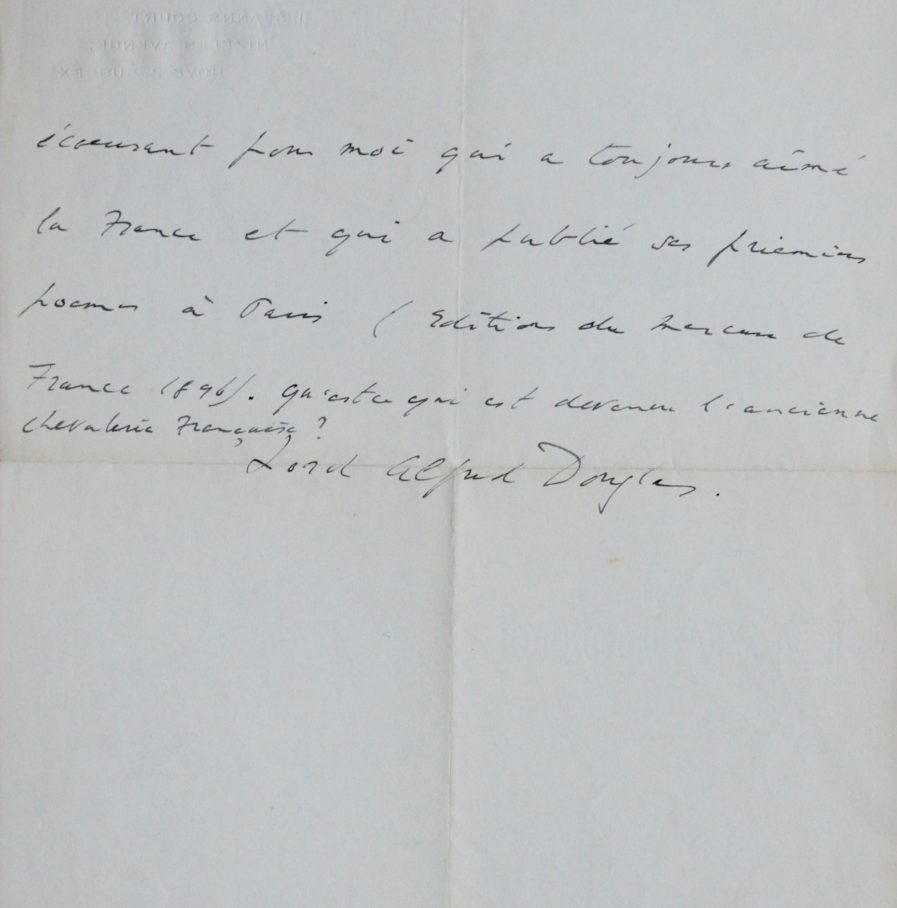 écoeurant pour moi qui a toujours aimé
la France et qui a publié ses premiers
poemes à Paris (Editions du Mercure de
France 1896). qu'est ce qui est devenu l'ancienne
chevalerie Française?
Lord Alfred Douglas.